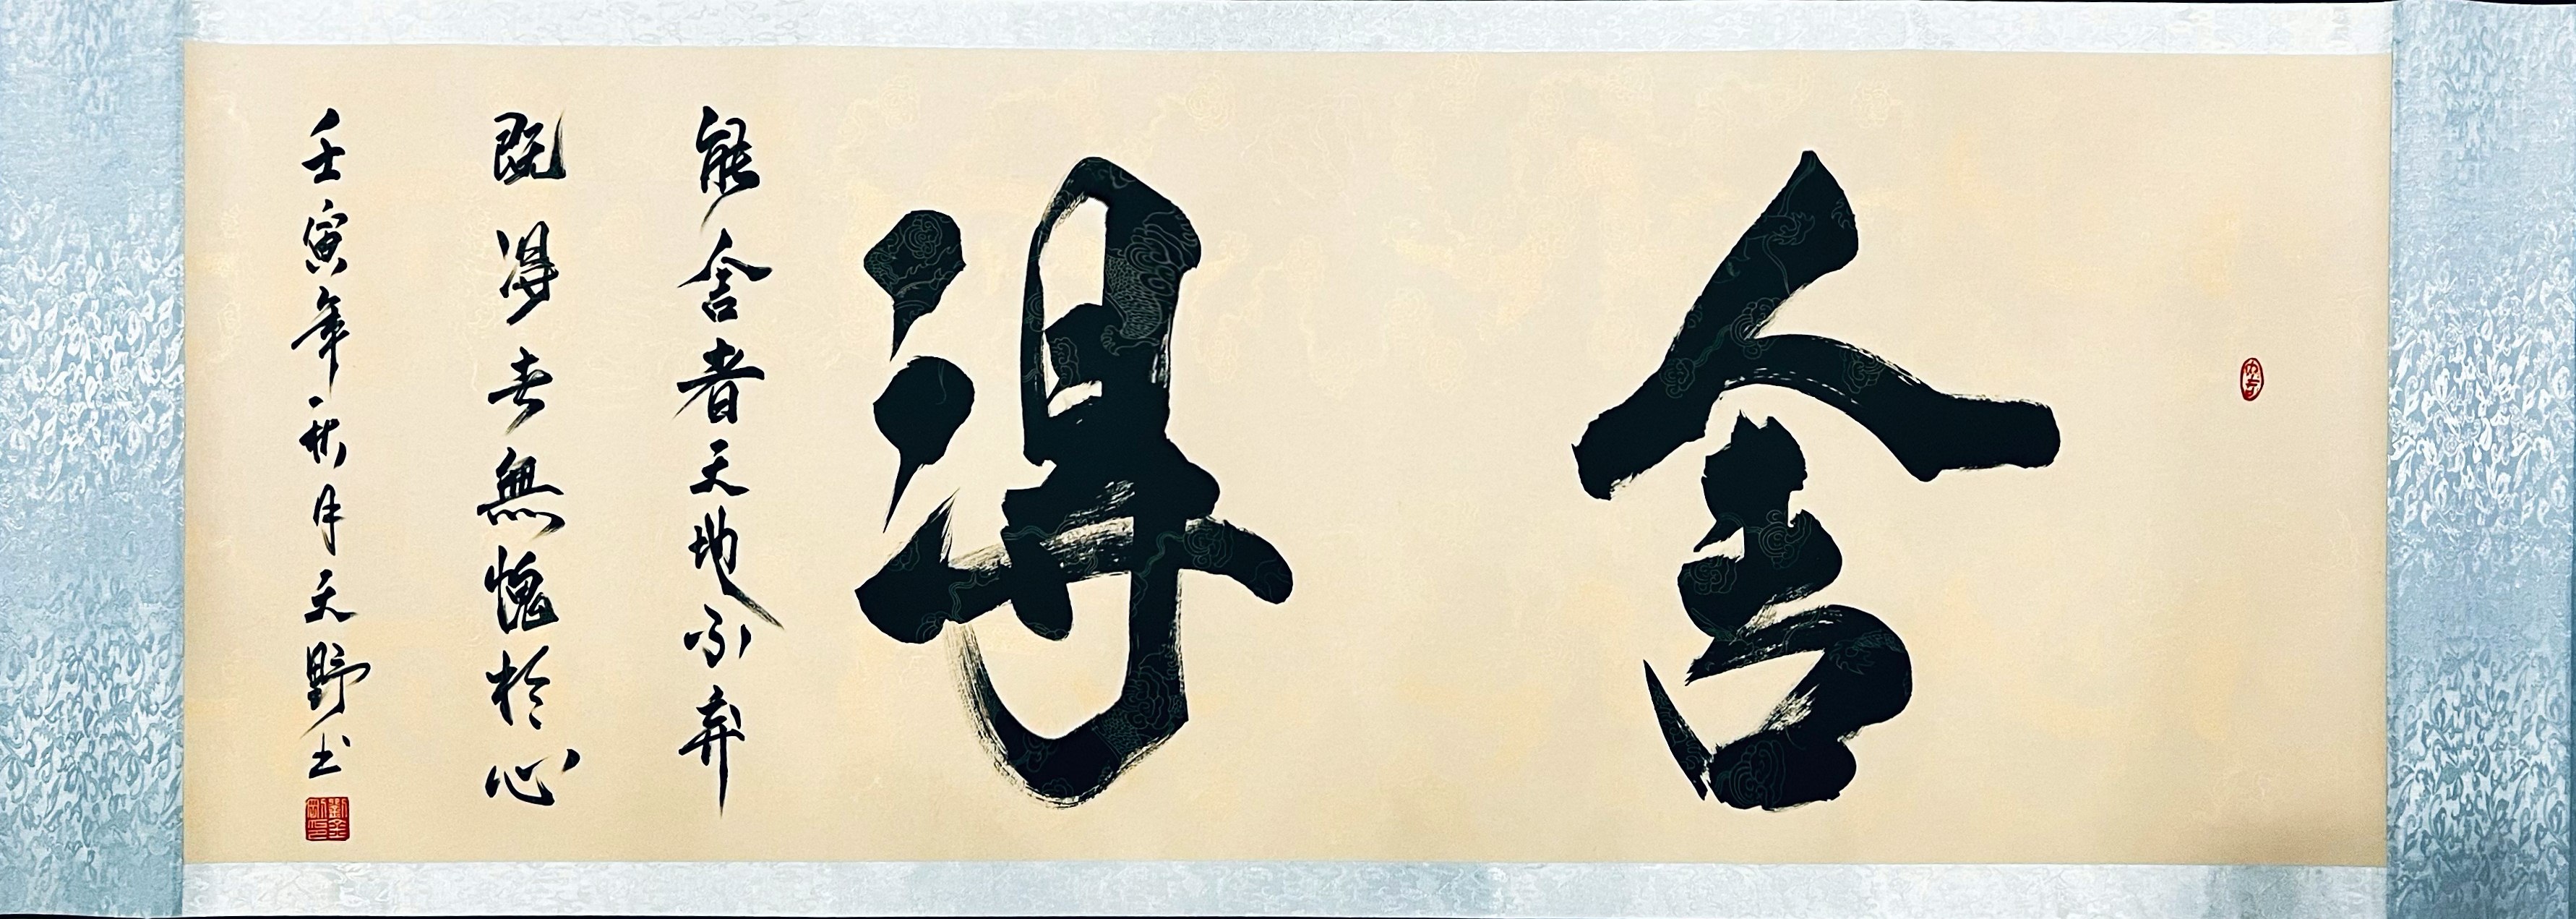 舍得
能舍者天地不弃
既得者無愧於心
壬寅年秋月天野书